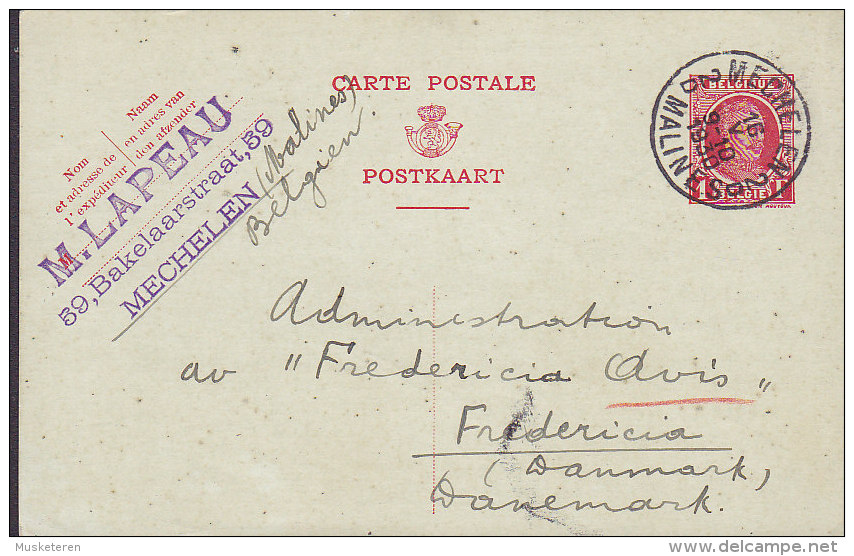 CARTE POSTALE
POSTKAART
Nom
et adresse de
l'expéditeur
Naam
en adres van
den afzender
M. LAPEAU
59, Bakelaarstraat, 59
MECHELEN (Malines)
Belgien.
BELGIQUE
BELGIË
MECHELEN
MALINES
16
V
9-10
1930
Administration
av "Fredericia Avis"
Fredericia
(Danmark,
Danemark.
Musketeren
delcampe.net